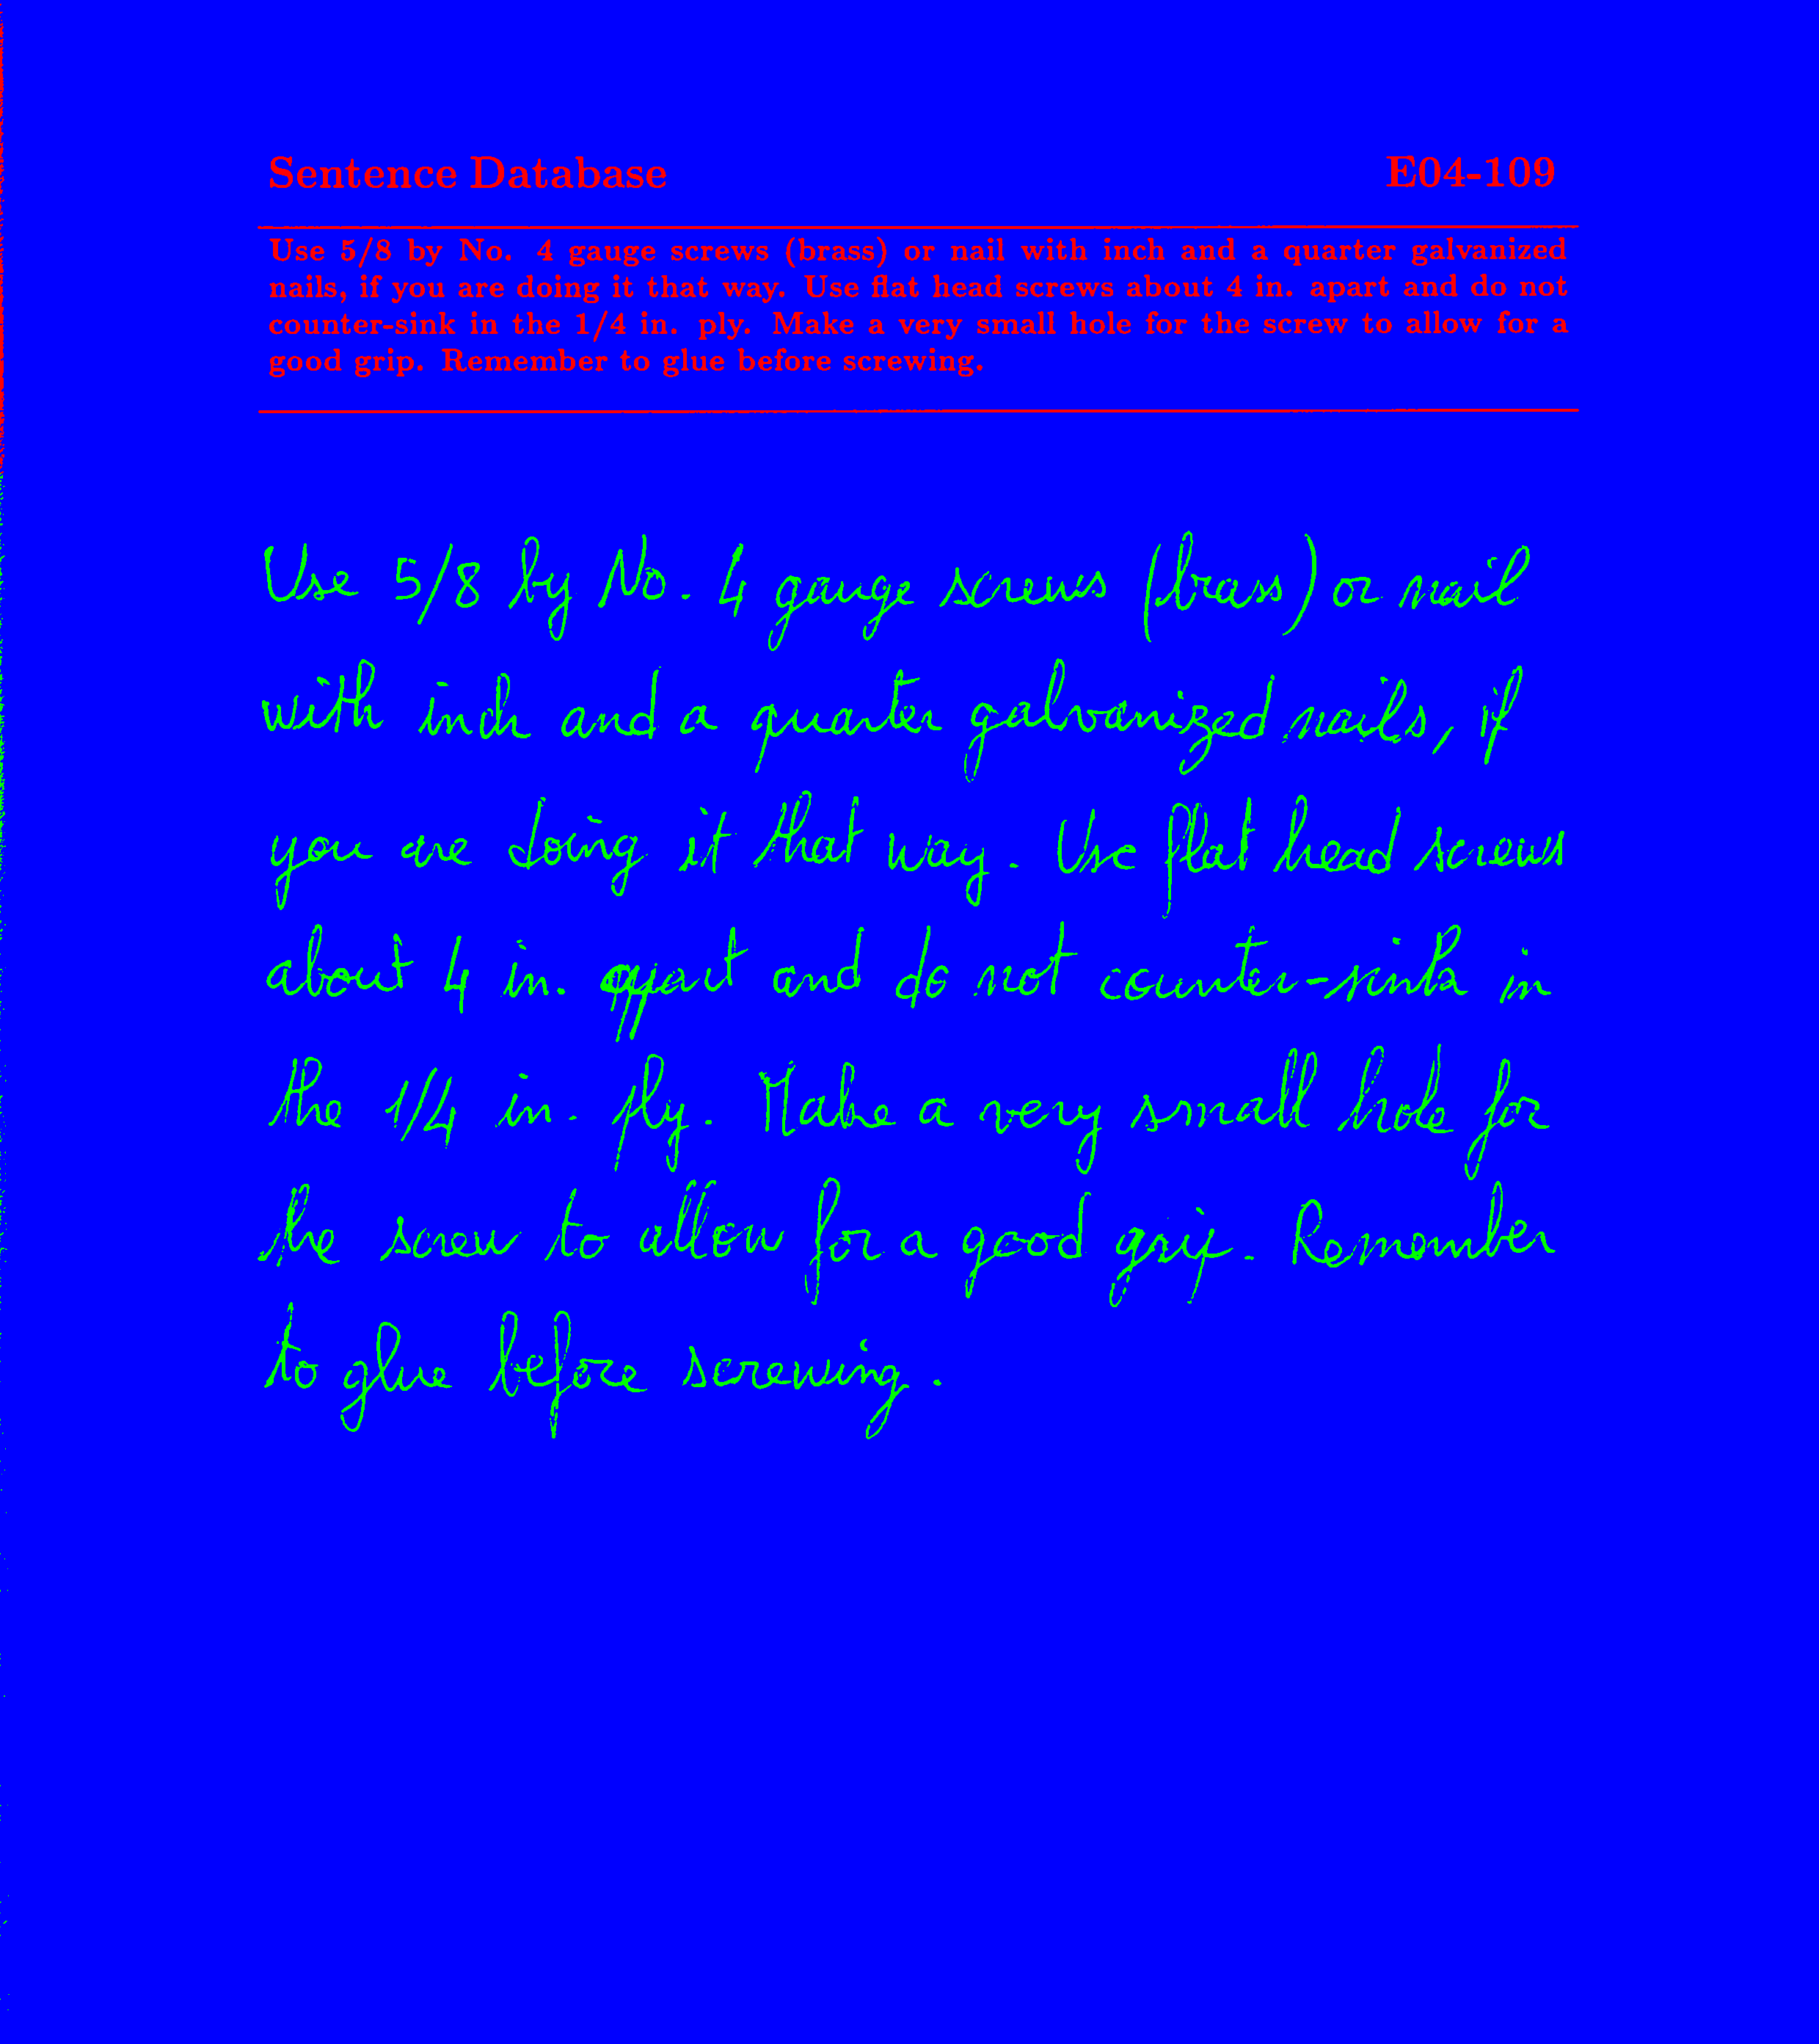 Sentence Database E04-109
Use 5/8 by No. 4 gauge screws (brass) or nail with inch and a quarter galvanized
nails, if you are doing it that way. Use flat head screws about 4 in. apart and do not
counter-sink in the 1/4 in. ply. Make a very small hole for the screw to allow for a
good grip. Remember to glue before screwing.
Use 5/8 by No. 4 gauge screws (brass) or nail
with inch and a quarter galvanized nails, if
you are doing it that way. Use flat head screws
about 4 in. apart and do not counter-sink in
the 1/4 in. ply. Make a very small hole for
the screw to allow for a good grip. Remember
to glue before screwing.